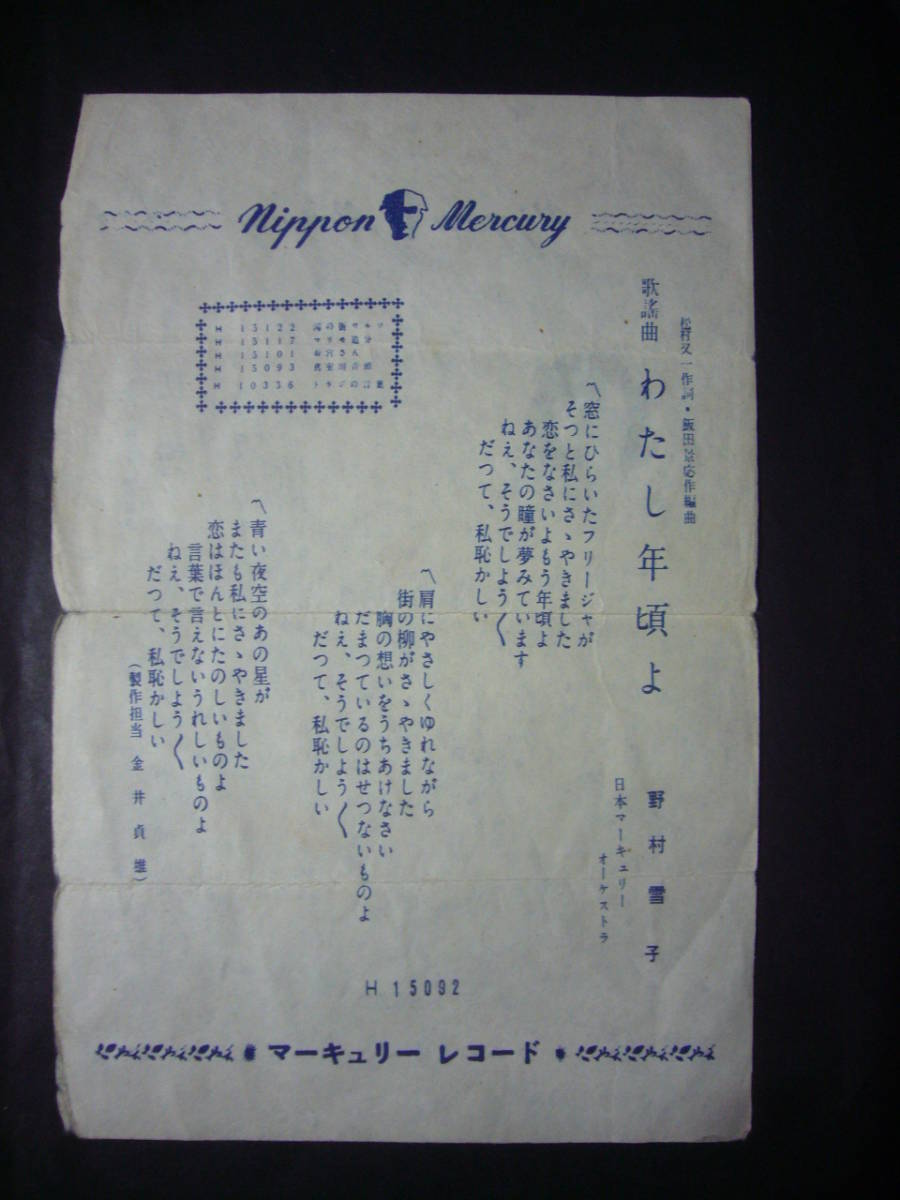 Nippon Mercury
松村又一作詞・飯田景応作編曲
歌謡曲 わたし年頃よ
野村雪子
日本マーキュリー
オーケストラ
〽窓にひらいたフリージャが
そつと私にさゝやきました
恋をなさいよもう年頃よ
あなたの瞳が夢みています
ねえ、そうでしよう〳〵
だつて、私恥かしい
〽肩にやさしくゆれながら
街の柳がさゝやきました
胸の想いをうちあけなさい
だまつているのはせつないものよ
ねえ、そうでしよう〳〵
だつて、私恥かしい
H 15122
H 15117
H 15101
H 15093
H 10336
〽青い夜空のあの星が
またも私にさゝやきました
恋はほんとにたのしいものよ
言葉で言えないうれしいものよ
ねえ、そうでしよう〳〵
だつて、私恥かしい
(製作担当 金井貞雄)
H 15092
マーキュリー レコード